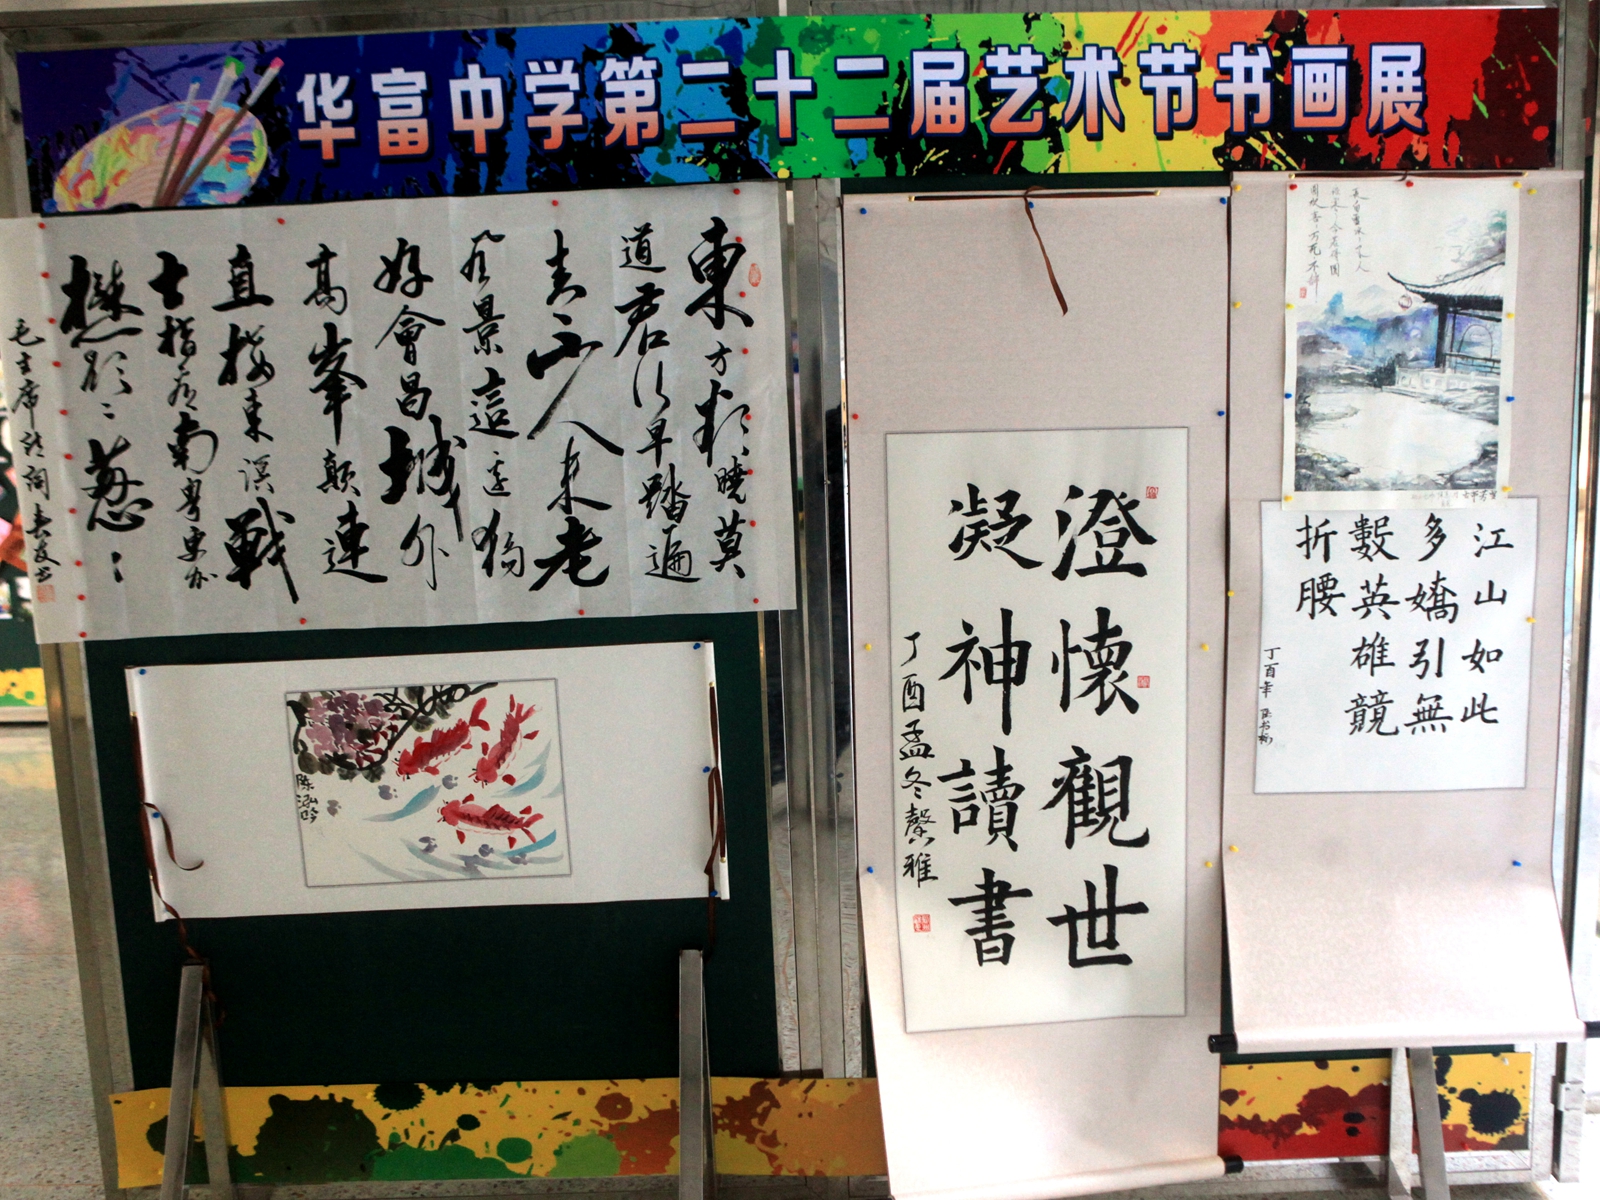 华富中学第二十二届艺术节书画展
東方欲曉莫
道君行早踏遍
青山人未老
風景這边獨
好會昌城外
高峯顛連
直接東溟戰
士指看南粤更加
葱〻
毛主席诗词
陈泓吟
澄懷觀世
凝神讀書
丁酉孟冬馨雅
江山如此
多嬌引無
數英雄競
折腰
丁酉年